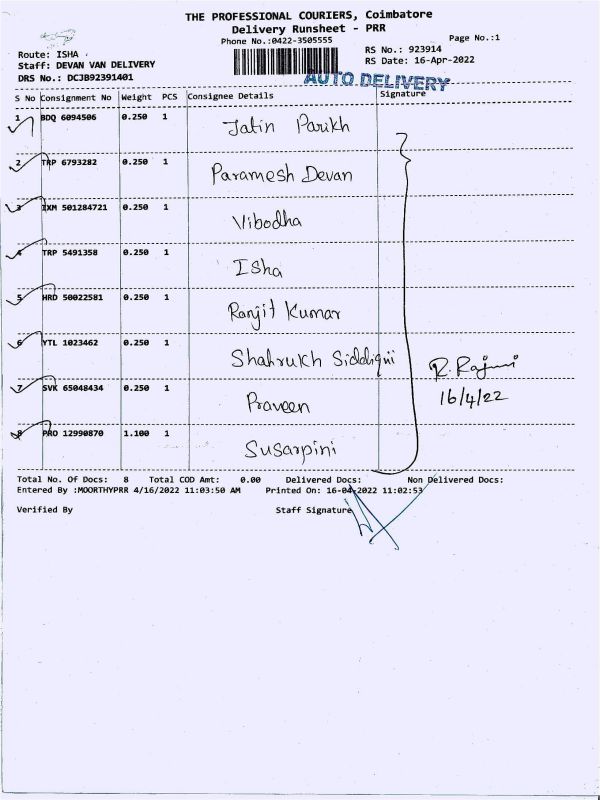 THE PROFESSIONAL COURIERS, Coimbatore
Delivery Runsheet - PRR
Phone No.:0422-3505555
Page No.:1
Route: ISHA
Staff: DEVAN VAN DELIVERY
DRS No.: DCJB92391401
RS No.: 923914
RS Date: 16-Apr-2022
AUTO DELIVERY
S No Consignment No Weight PCS Consignee Details Signature
1 BDQ 6094506 0.250 1 Jatin Parikh
2 TRP 6793282 0.250 1 Paramesh Devan
3 IXM 501284721 0.250 1 Vibodha
4 TRP 5491358 0.250 1 Isha
5 HRD 50022581 0.250 1 Ranjit Kumar
6 YTL 1023462 0.250 1 Shahrukh Siddiqui
R. Rajuni
7 SVK 65048434 0.250 1 Praveen
16/4/22
8 PRO 12990870 1.100 1 Susarpini
Total No. Of Docs: 8 Total COD Amt: 0.00 Delivered Docs: Non Delivered Docs:
Entered By :MOORTHYPRR 4/16/2022 11:03:50 AM Printed On: 16-04-2022 11:02:53
Verified By Staff Signature